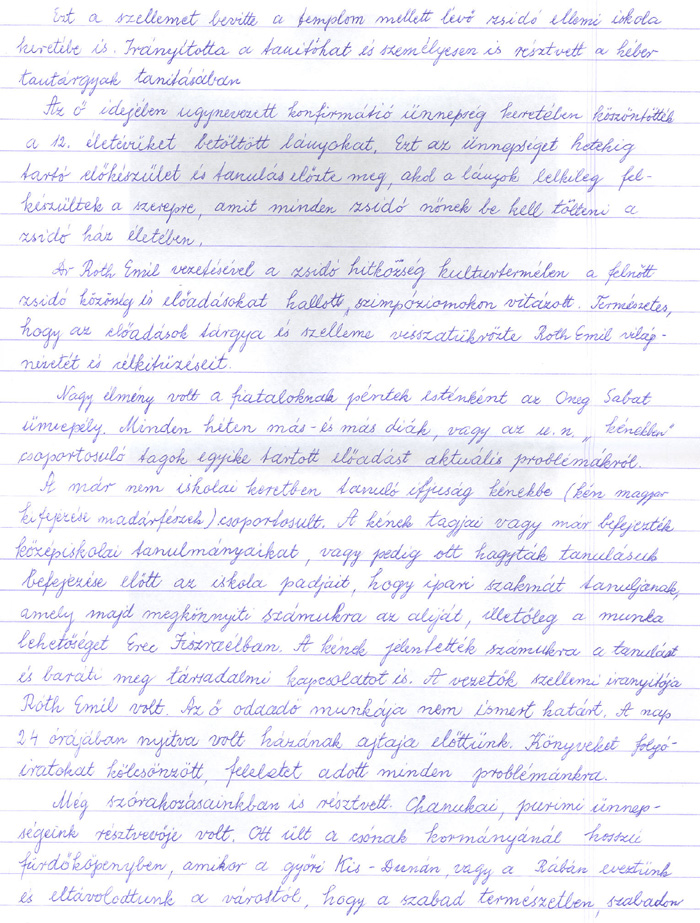 Ezt a szellemet bevitte a templom mellett lévő zsidó ellemi iskola
keretébe is. Irányította a tanítókat és személyesen is résztvett a héber
tantárgyak tanításában
Az ő idejében ugynevezett konfirmátió ünnepség keretében köszöntötték
a 12. életévüket betöltött lányokat. Ezt az ünnepséget hetekig
tartó előkészület és tanulás előzte meg, ahol a lányok lelkileg fel-
készültek a szerepre, amit minden zsidó nőnek be kell tölteni a
zsidó ház életében.
Dr Roth Emil vezetésével a zsidó hitközség kulturtermében a felnőtt
zsidó közönség is előadásokat hallott, szimpóziomokon vitázott. Természetes,
hogy az előadások tárgya és szelleme visszatükrözte Roth Emil világ-
nézetét és célkitűzéseit.
Nagy élmény volt a fiataloknak péntek esténként az Oneg Sabat
ünnepély. Minden héten más-és más diák, vagy az u.n. „kénekben"
csoportosuló tagok egyike tartott előadást aktuális problémákról.
A már nem iskolai keretben tanuló ifjuság kénekbe (kén magyar
kifejezése madárfészek) csoportosult. A kének tagjai vagy már befejezték
középiskolai tanulmányaikat, vagy pedig ott hagyták tanulásuk
befejezése előtt az iskola padjait, hogy ipari szakmát tanuljanak,
amely majd megkönnyiti számukra az aliját, illetőleg a munka
lehetőséget Erec Jiszraélban. A kének jelentették számukra a tanulást
és baráti meg társadalmi kapcsolatot is. A vezetők szellemi iranyitója
Róth Emil volt. Az ő odaadó munkája nem ismert határt. A nap
24 órájában nyitva volt házának ajtaja előttünk. Könyveket folyó-
iratokat kölcsönzött, feleletet adott minden problémánkra.
Még szórakozásainkban is résztvett. Chanukai, purimi ünnep-
ségeink résztvevője volt. Ott ült a csónak kormányánál hosszú
fürdőköpenyben, amikor a győri Kis-Dunán, vagy a Rábán eveztünk
és eltávolodtunk a várostól, hogy a szabad természetben szabadon